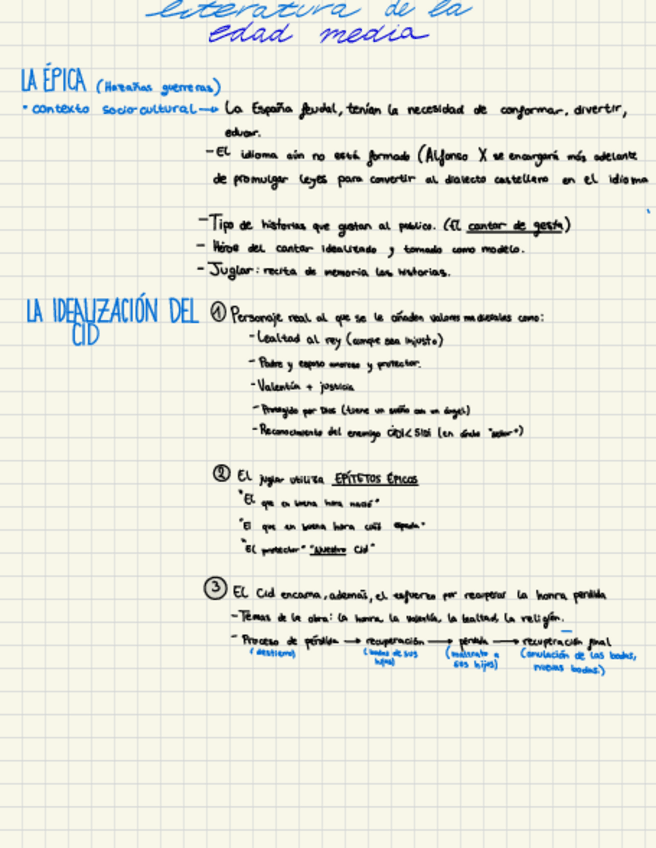 literatura de la
edad media
LA ÉPICA (Hazañas guerreras)
• contexto socio-cultural → La España feudal, tenían la necesidad de conformar, divertir,
educar.
- El idioma aún no está formado (Alfonso X se encargará más adelante
de promulgar leyes para convertir al dialecto castellano en el idioma
- Tipo de historias que gustan al público. (El cantar de gesta)
- Héroe del cantar idealizado y tomado como modelo.
- Juglar: recita de memoria las historias.
LA IDEALIZACIÓN DEL
CID
① Personaje real al que se le añaden valores medievales como:
- Lealtad al rey (aunque sea injusto)
- Padre y esposo amoroso y protector.
- Valentía + justicia
- Protegido por Dios (tiene un sueño con un ángel)
- Reconocimiento del enemigo CID < SIDI (en árabe "señor")
② El juglar utiliza EPÍTETOS ÉPICOS
"El que en buena hora nació"
"El que en buena hora ciñó espada"
"El protector" "Nuestro Cid"
③ El Cid encarna, además, el esfuerzo por recuperar la honra perdida
- Temas de la obra: la honra, la valentía, la lealtad, la religión.
- Proceso de pérdida → recuperación → pérdida → recuperación final
(destierro) (bodas de sus (maltrato a (anulación de las bodas,
hijas) sus hijas) nuevas bodas.)